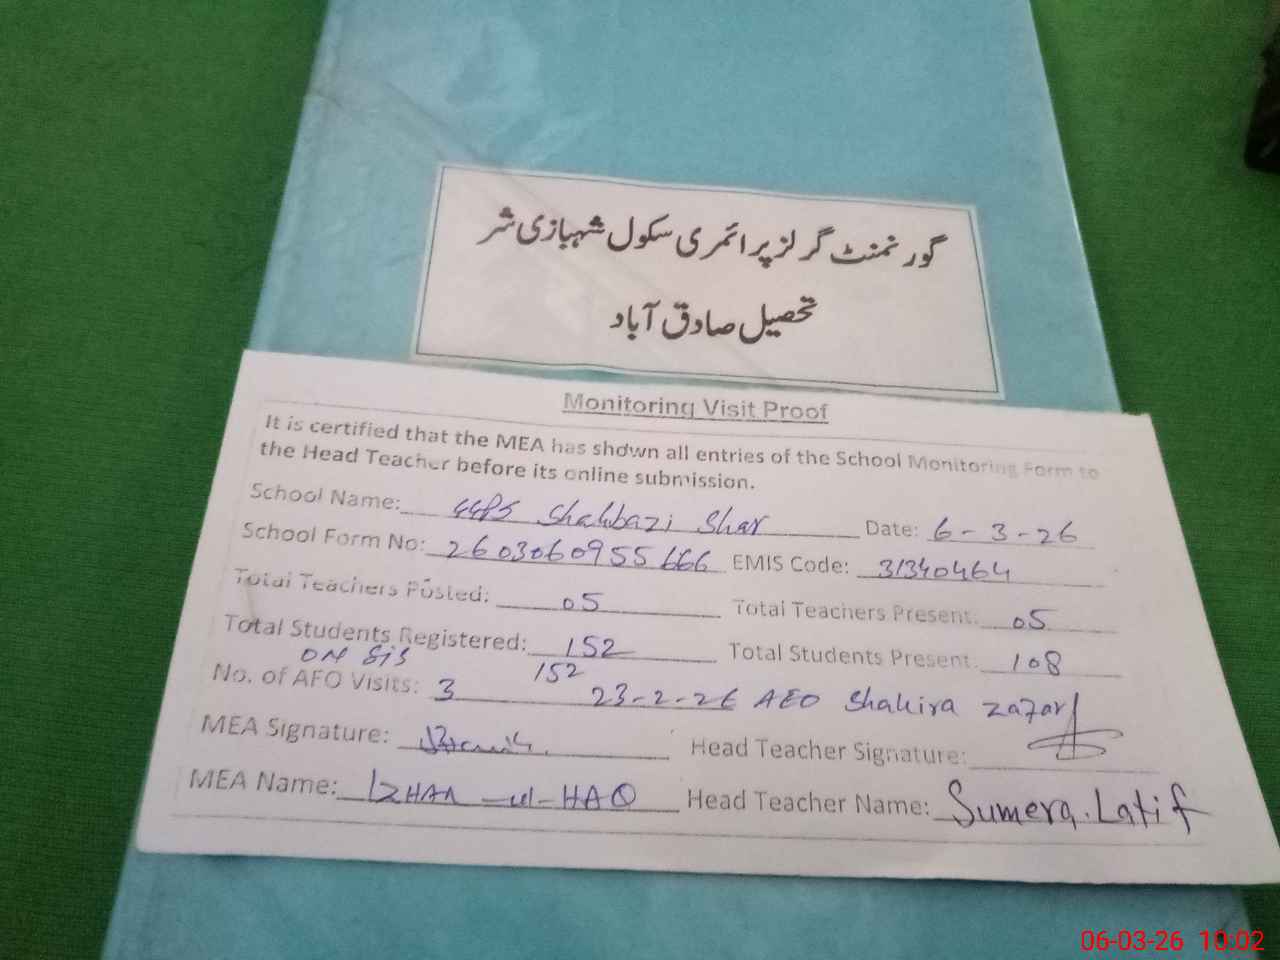 گورنمنٹ گرلز پرائمری سکول شہبازی شر
تحصیل صادق آباد
Monitoring Visit Proof
It is certified that the MEA has shown all entries of the School Monitoring Form to
the Head Teacher before its online submission.
School Name: GGPS Shahbazi Shar Date: 6-3-26
School Form No: 2603060955666 EMIS Code: 31340464
Total Teachers Posted: 05 Total Teachers Present: 05
Total Students Registered: 152 Total Students Present: 108
ON SIS 152
No. of AEO Visits: 3 23-2-26 AEO Shakira Zafar
MEA Signature: Head Teacher Signature:
MEA Name: IZHAR-ul-HAQ Head Teacher Name: Sumera.Latif
06-03-26 10:02